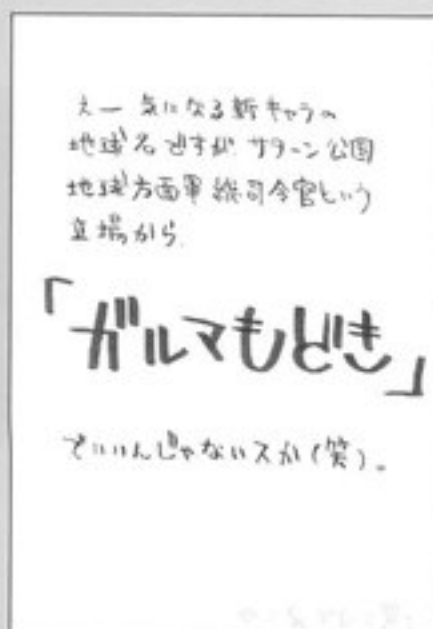 えー 気になる新キャラの
地球名ですが、サターン公国
地球方面軍総司令官という
立場から、
「ガルマもどき」
でいいんじゃないスか(笑)。